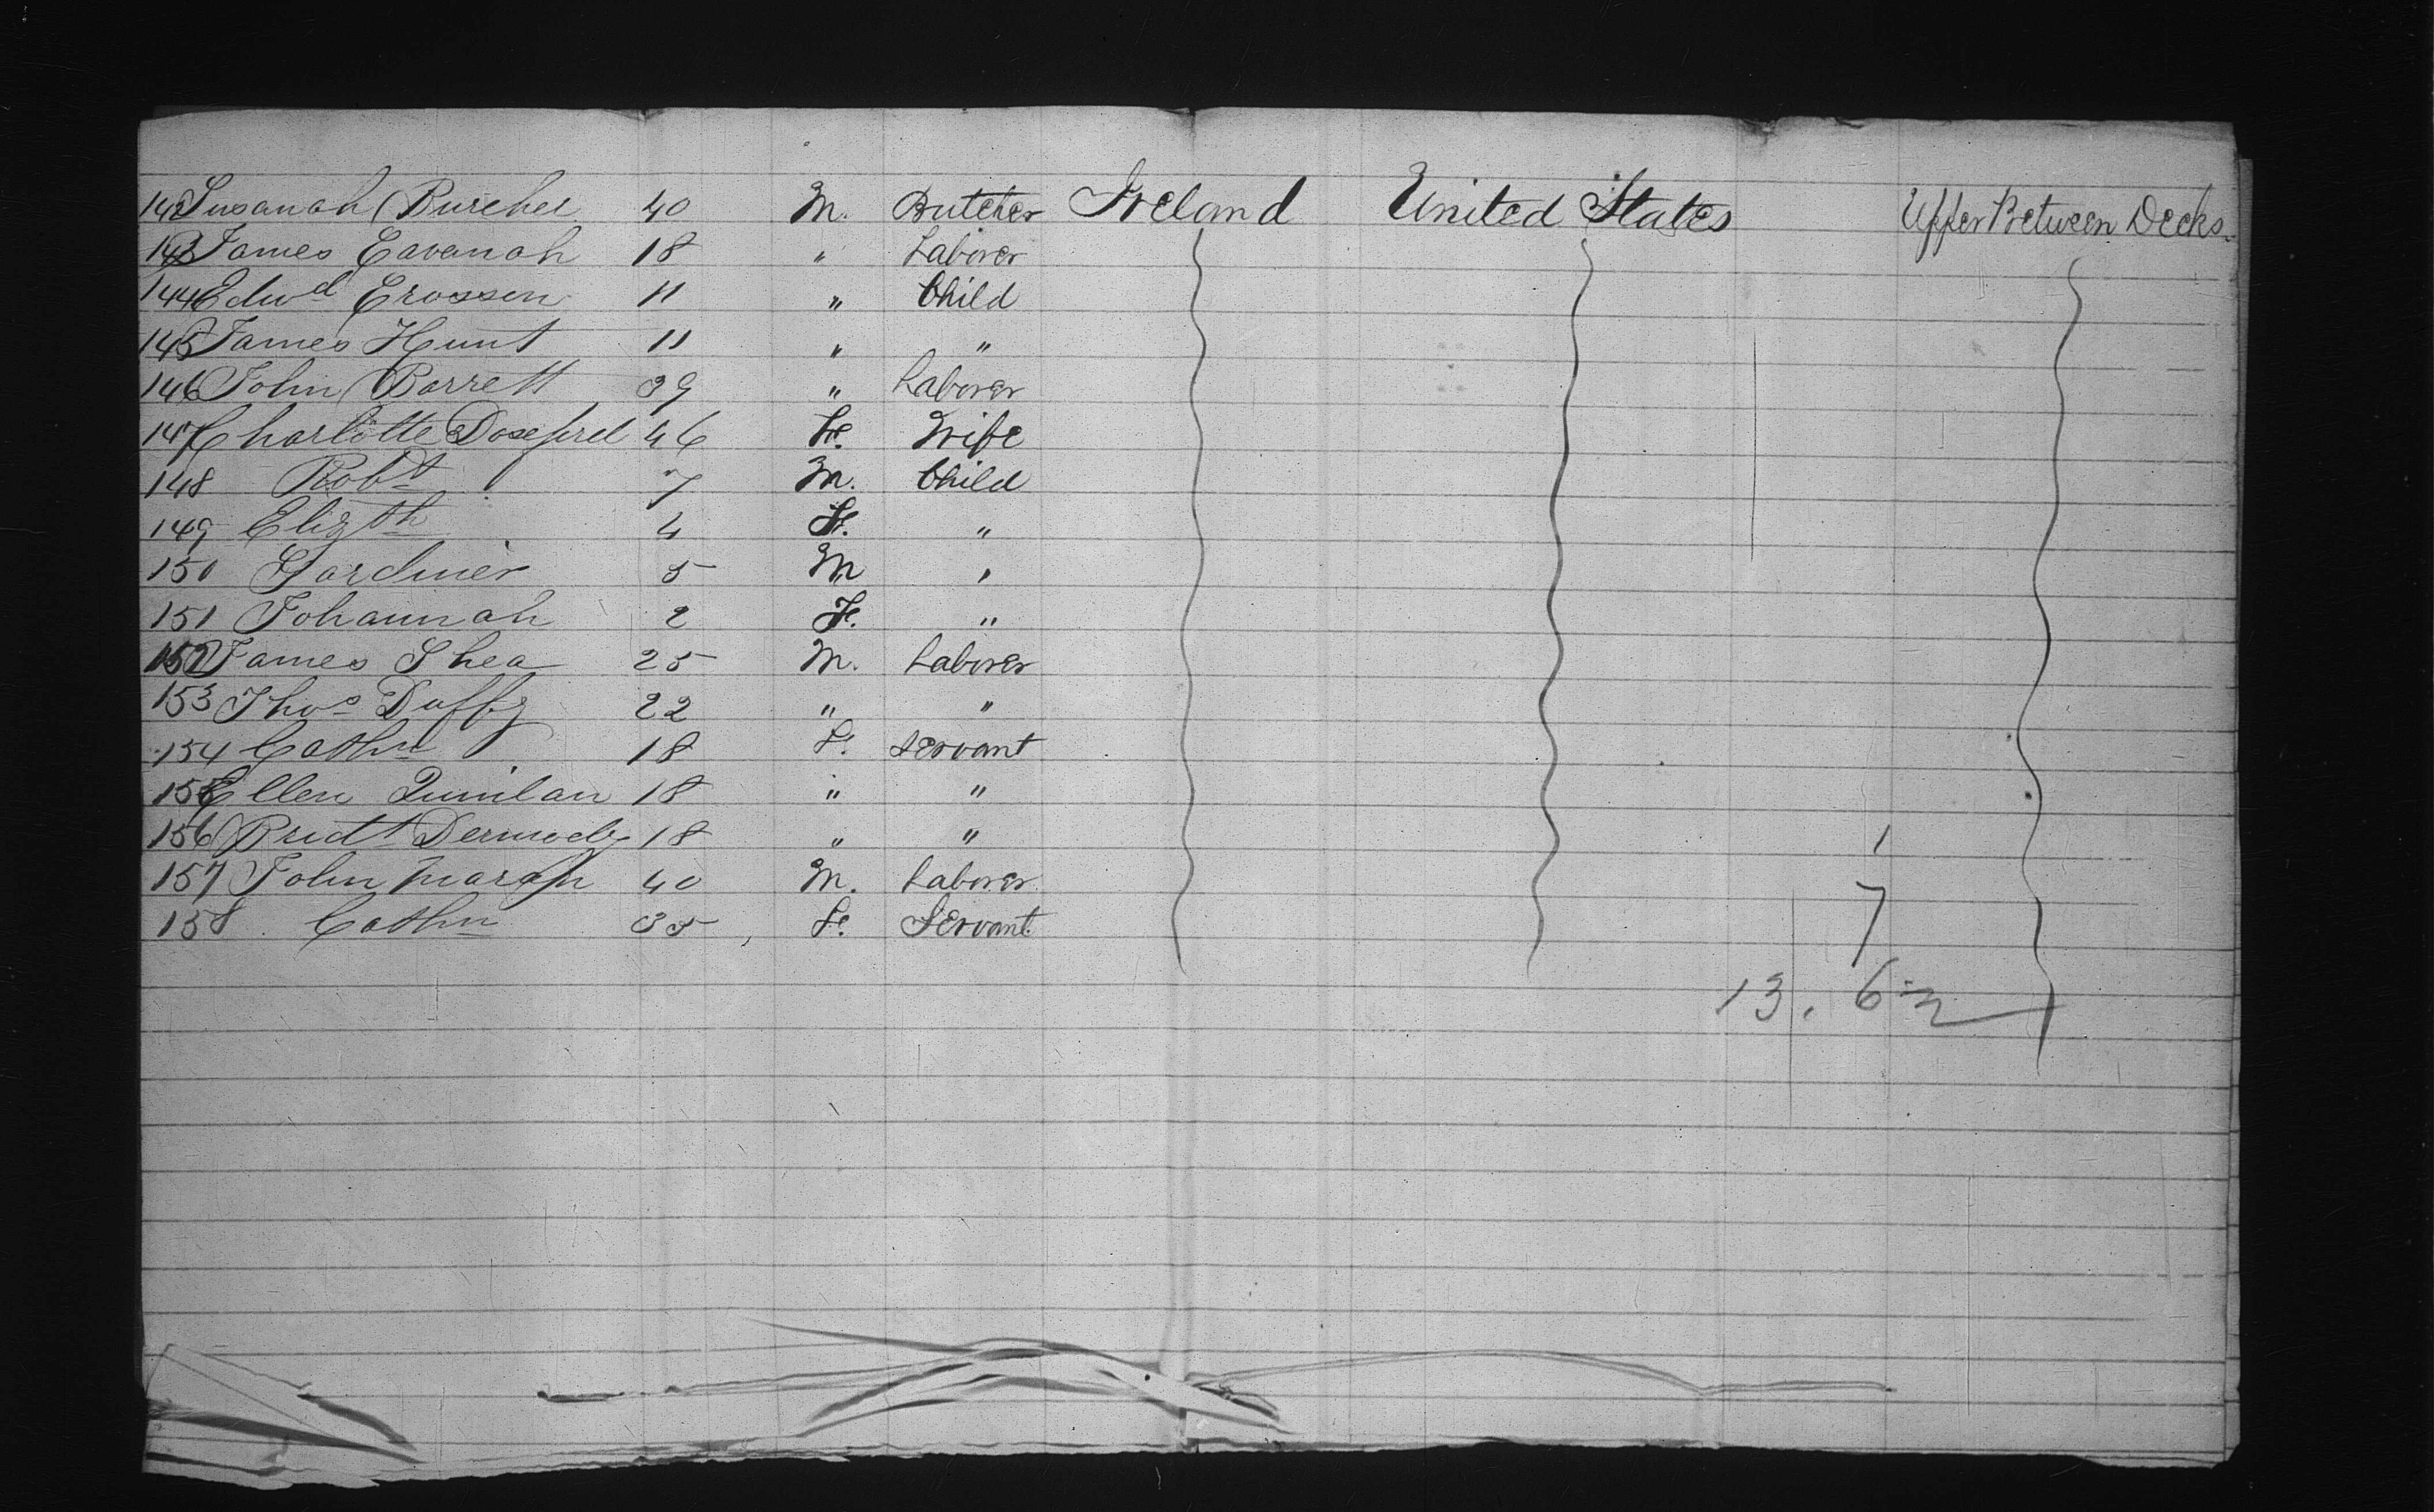 142 Susanah Burcher 40 M. Butcher Ireland United States Upper Between Decks.
143 James Cavanah 18 " Laborer
144 Edwd Crossen 11 " Child
145 James Hunt 11 " "
146 John Barrett 39 " Laborer
147 Charlotte 46 Fe. Wife
148 Robt 7 M. Child
149 Elizth 4 Fe. "
150 Gardiner 5 M "
151 Johannah 2 Fe. "
152 James Shea 25 M. Laborer
153 Thos Duffy 22 " "
154 Cathn 18 Fe. Servant
155 Ellen Quinlan 18 " "
156 Bridt Dermody 18 " "
157 John 40 M. Laborer
158 Cathn 35 Fe. Servant
1
7
13.